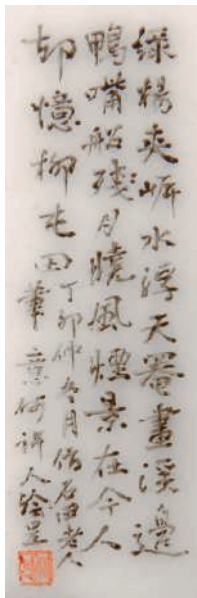 綠楊夾岸水浮天罨畫溪邊
鴨嘴船殘月曉風煙景在令人
却憶柳屯田
丁卯仲冬月倣石田老人
筆意何許人繪